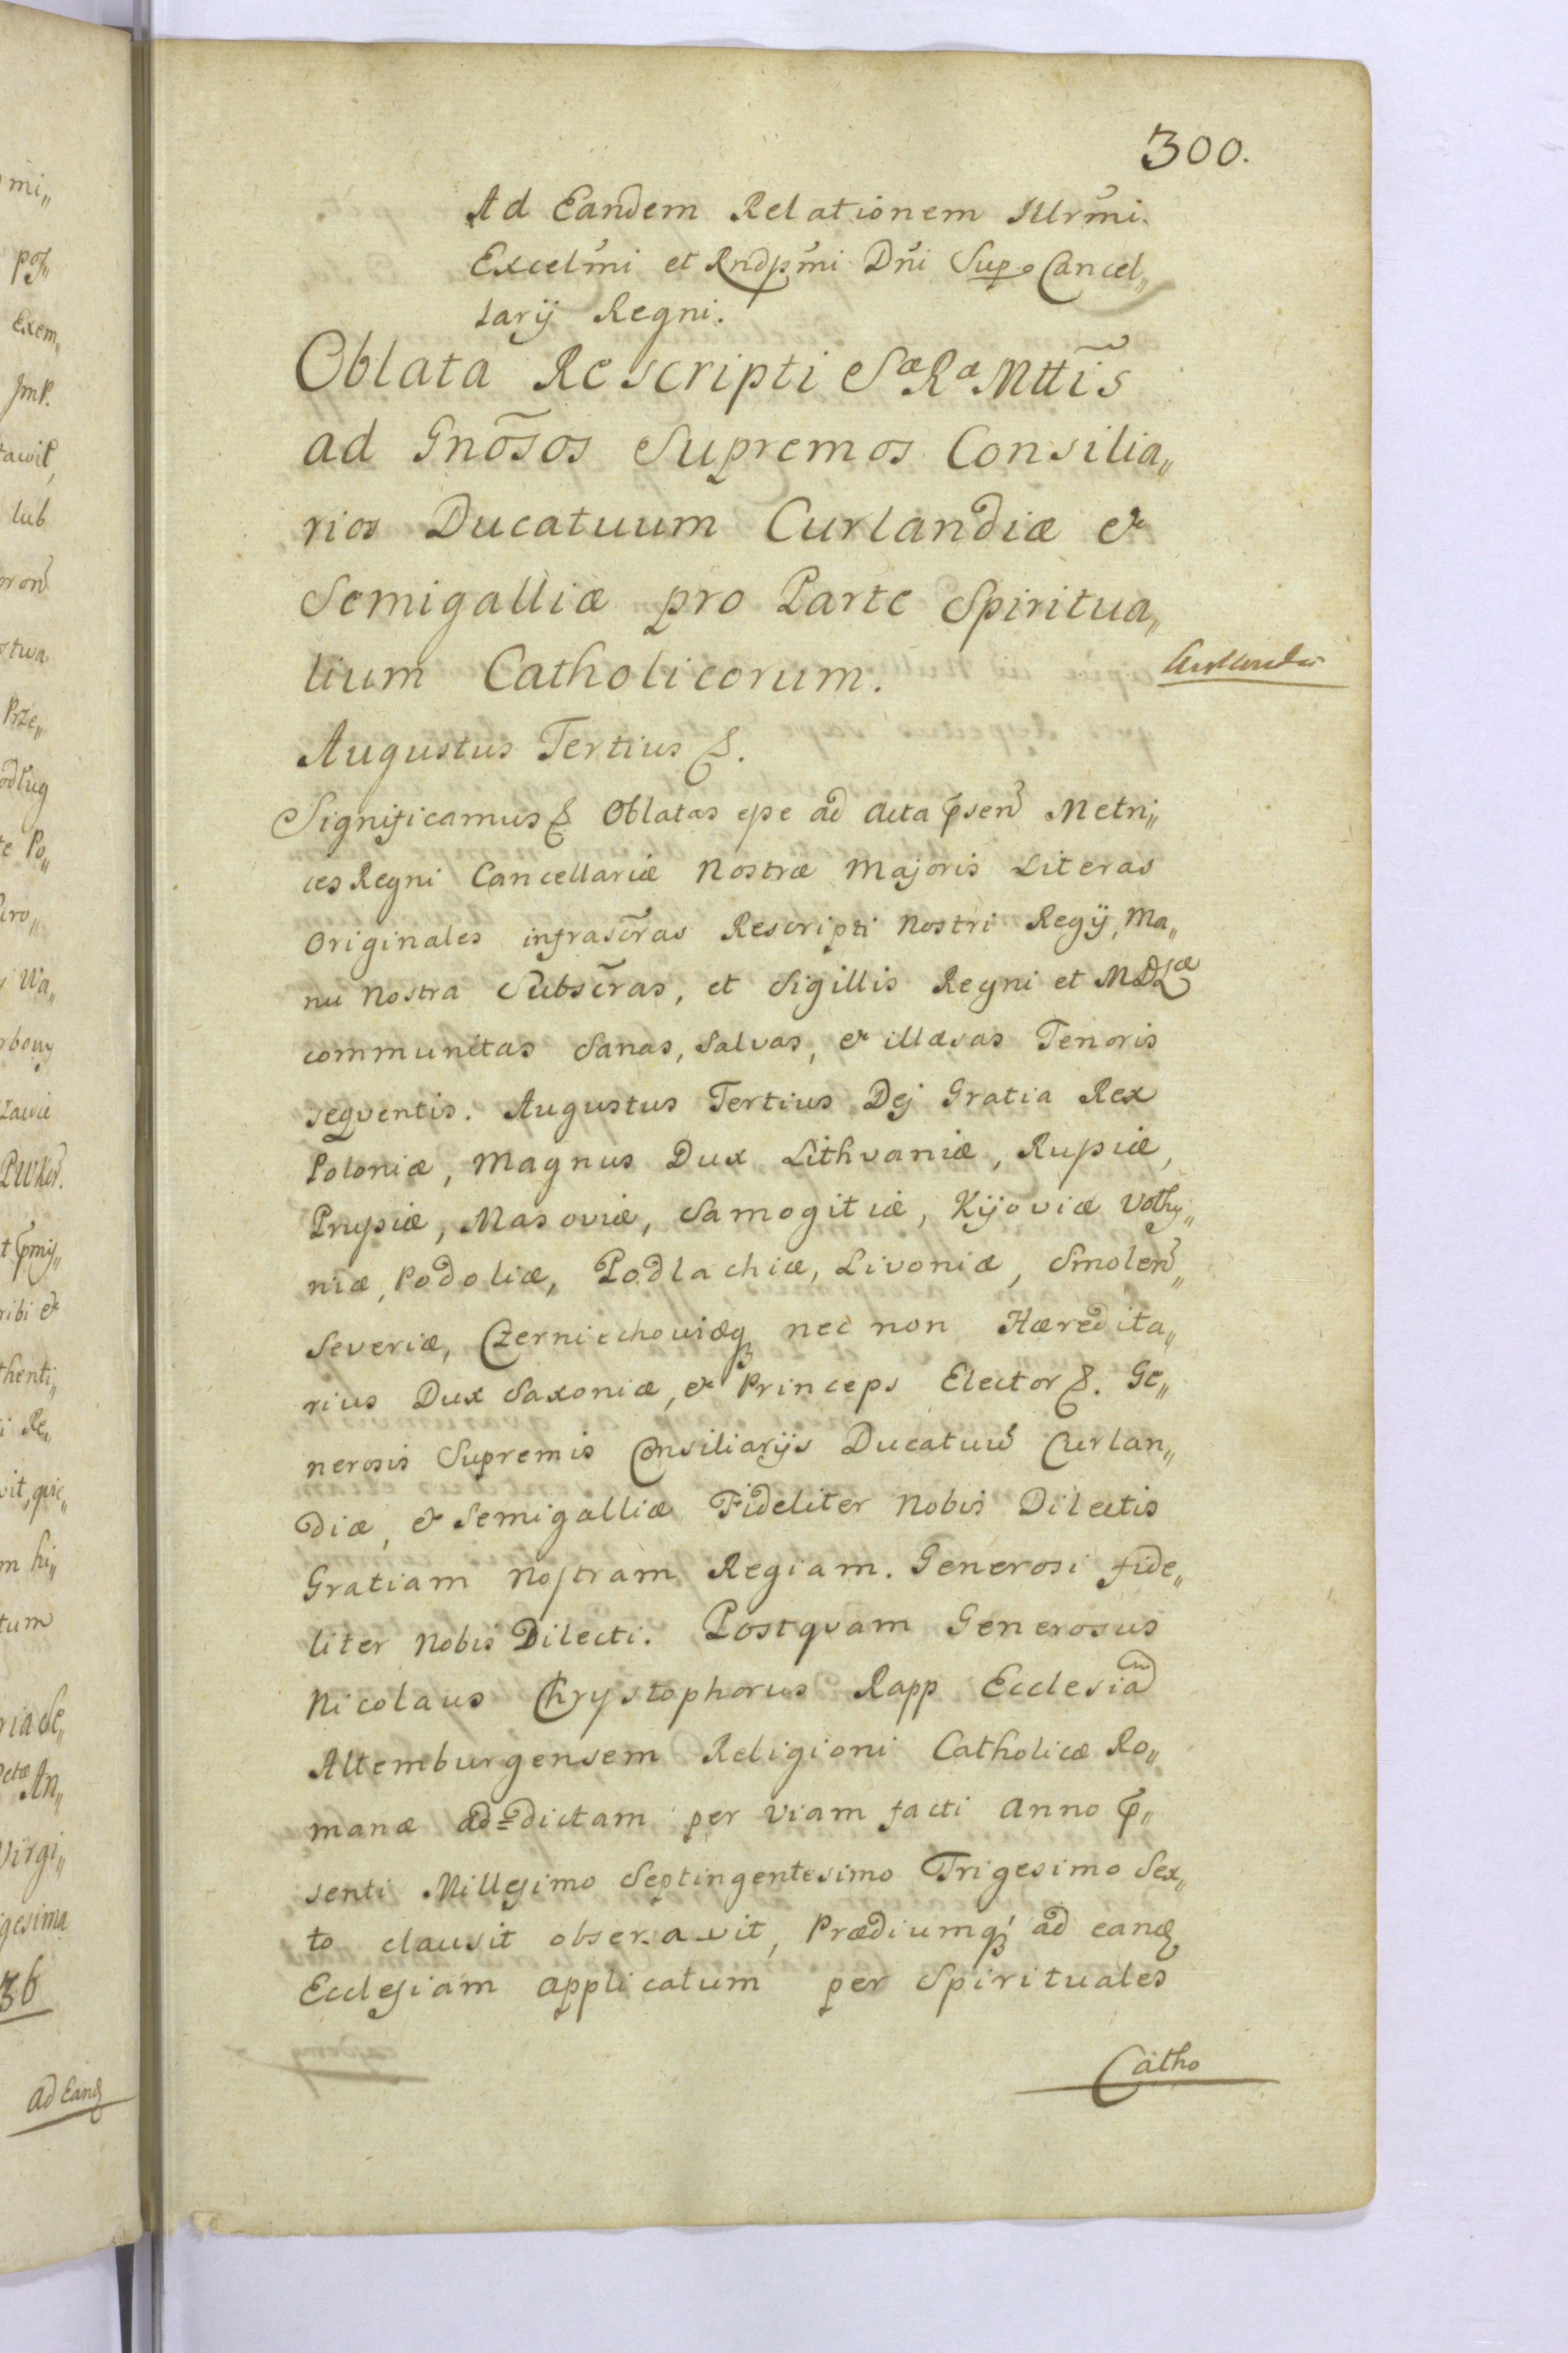 300.
Ad Eandem Relationem Illrmi.
Excelmi et Rndssmi Dñi Sup. Cancel„
larij Regni.
Oblata Rescripti Sæ Ræ Mttis
ad Gnosos Supremos Consilia„
rios Ducatuum Curlandiæ &
Semigalliæ pro Parte Spiritua„
lium Catholicorum.
Curlandia
Augustus Tertius &.
Significamus & Oblatas esse ad Acta psen Metri„
ces Regni Cancellariæ Nostræ Majoris Literas
Originales infrascras Rescripti Nostri Regij, Ma„
nu Nostra Subscras, et Sigillis Regni et MDLæ
communitas Sanas, Salvas, & illæsas Tenoris
seqventis. Augustus Tertius Dej Gratia Rex
Poloniæ, Magnus Dux Lithvaniæ, Russiæ,
Prussiæ, Masoviæ, Samogitiæ, Kijoviæ Volhy„
niæ, Podoliæ, Podlachiæ, Livoniæ, Smolen„
Severiæ, Czerniechoviæq nec non Hæredita„
rius Dux Saxoniæ, & Princeps Elector &. Ge„
nerosis Supremis Consiliarijs Ducatuu Curlan„
diæ, & Semigalliæ Fideliter Nobis Dilectis
Gratiam Nostram Regiam. Generosi fide„
liter Nobis Dilecti. Postqvam Generosus
Nicolaus Chrystophorus Rapp Ecclesia
Altemburgensem Religioni Catholicæ Ro„
manæ ad=dictam per viam facti Anno p„
senti Millesimo Septingentesimo Trigesimo Sex„
to clausit obseravit, Prædiumq ad eand
Ecclesiam applicatum per Spirituales
Catho
mi„
Exem„
lub
stwa
Prze„
odług
te Po„
Wa„
ribi &
thenti„
i Re„
m hi„
tum
An„
Virgi„
gesima
36
ad Eand